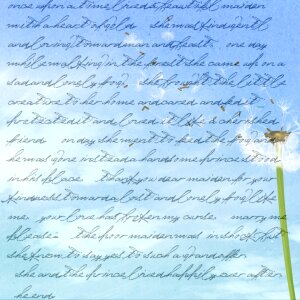 once upon a time lived a beautiful maiden
with a heart of gold she was kind gentle
and loving toward man and beast one day
while walking in the forest she came up on a
sad and lonely frog she brought the little
creature to her home and cared and fed it
protected it and loved it like a cherished
friend on day she went to feed the frog and
he was gone instead a handsome prince stood
in his place thank you dear maiden for your
kindness toward a lost and lonely frog like
me your love has broken my curse marry me
please the poor maiden was in shock but
she knew to say yes to such a grand offer
she and the prince lived happily ever after
the end